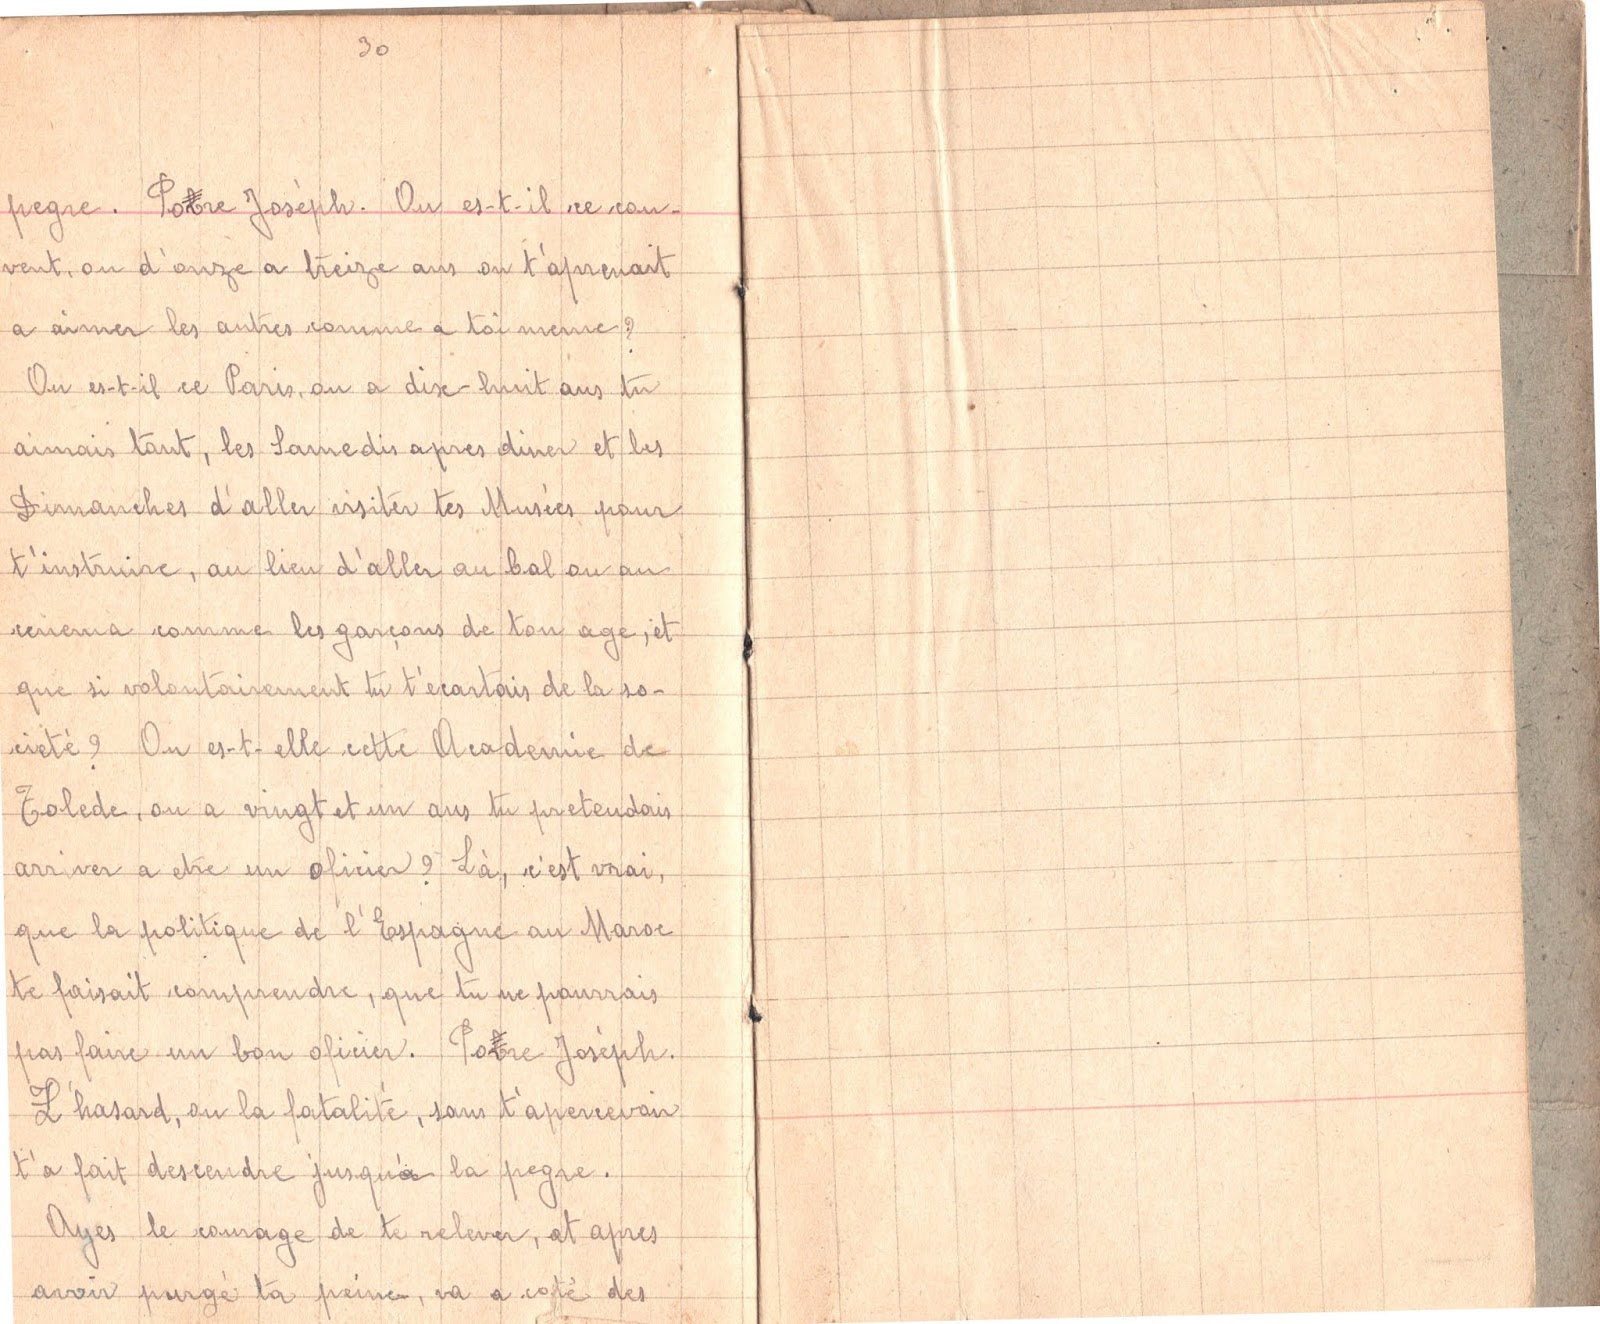 30
pegre. Potre Joséph. Ou es-t-il ce cou-
vent, ou d'onze a treize ans on t'aprenait
a aimer les autres comme a toi meme?
Ou es-t-il ce Paris, ou a dix-huit ans tu
aimais tant, les Samedis apres diner et les
Dimanches d'aller visiter tes Musées pour
t'instruire, au lieu d'aller au bal ou au
cenema comme les garçons de ton age, et
que si volontairement tu t'ecartais de la so-
cieté? Ou es-t-elle cette Academie de
Tolede, ou a vingt et un ans tu pretendais
arriver a etre un oficier? Là, c'est vrai,
que la politique de l'Espagne au Maroc
te faisait comprendre, que tu ne pourrais
pas faire un bon oficier. Potre Joséph.
L'hasard, ou la fatalité, sans t'apercevoir
t'a fait descendre jusqu'à la pegre.
Ayes le courage de te relever, et apres
avoir purgé ta peine, va a coté des